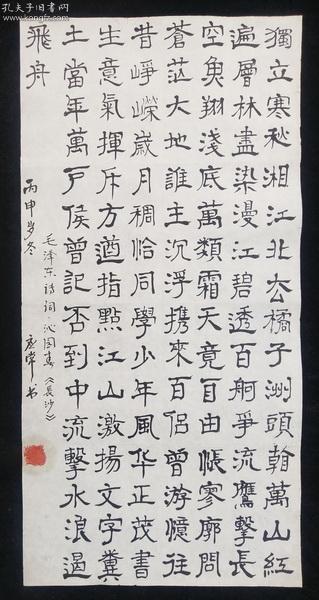 孔夫子旧书网
www.kongfz.com
獨立寒秋湘江北去橘子洲頭看萬山紅
遍層林盡染漫江碧透百舸爭流鷹擊長
空魚翔淺底萬類霜天竟自由悵寥廓問
蒼茫大地誰主沉浮携來百侣曾游憶往
昔崢嶸歲月稠恰同學少年風华正茂書
生意氣揮斥方遒指點江山激揚文字糞
土當年萬户侯曾記否到中流擊水浪遏
飛舟
丙申岁冬
毛泽东诗词沁园春《長沙》
常书